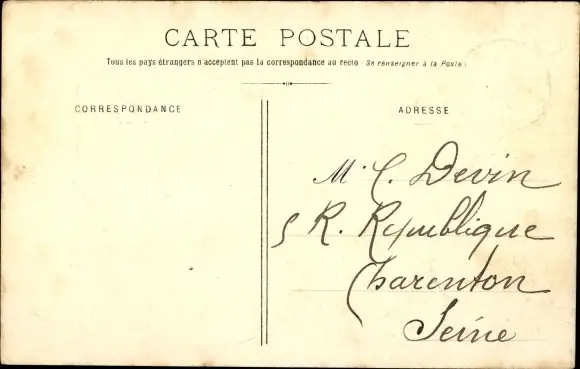 CARTE POSTALE
Tous les pays étrangers n'acceptent pas la correspondance au recto (Se renseigner à la Poste)
CORRESPONDANCE
ADRESSE
Mr C. Devin
5 R. République
Charenton
Seine